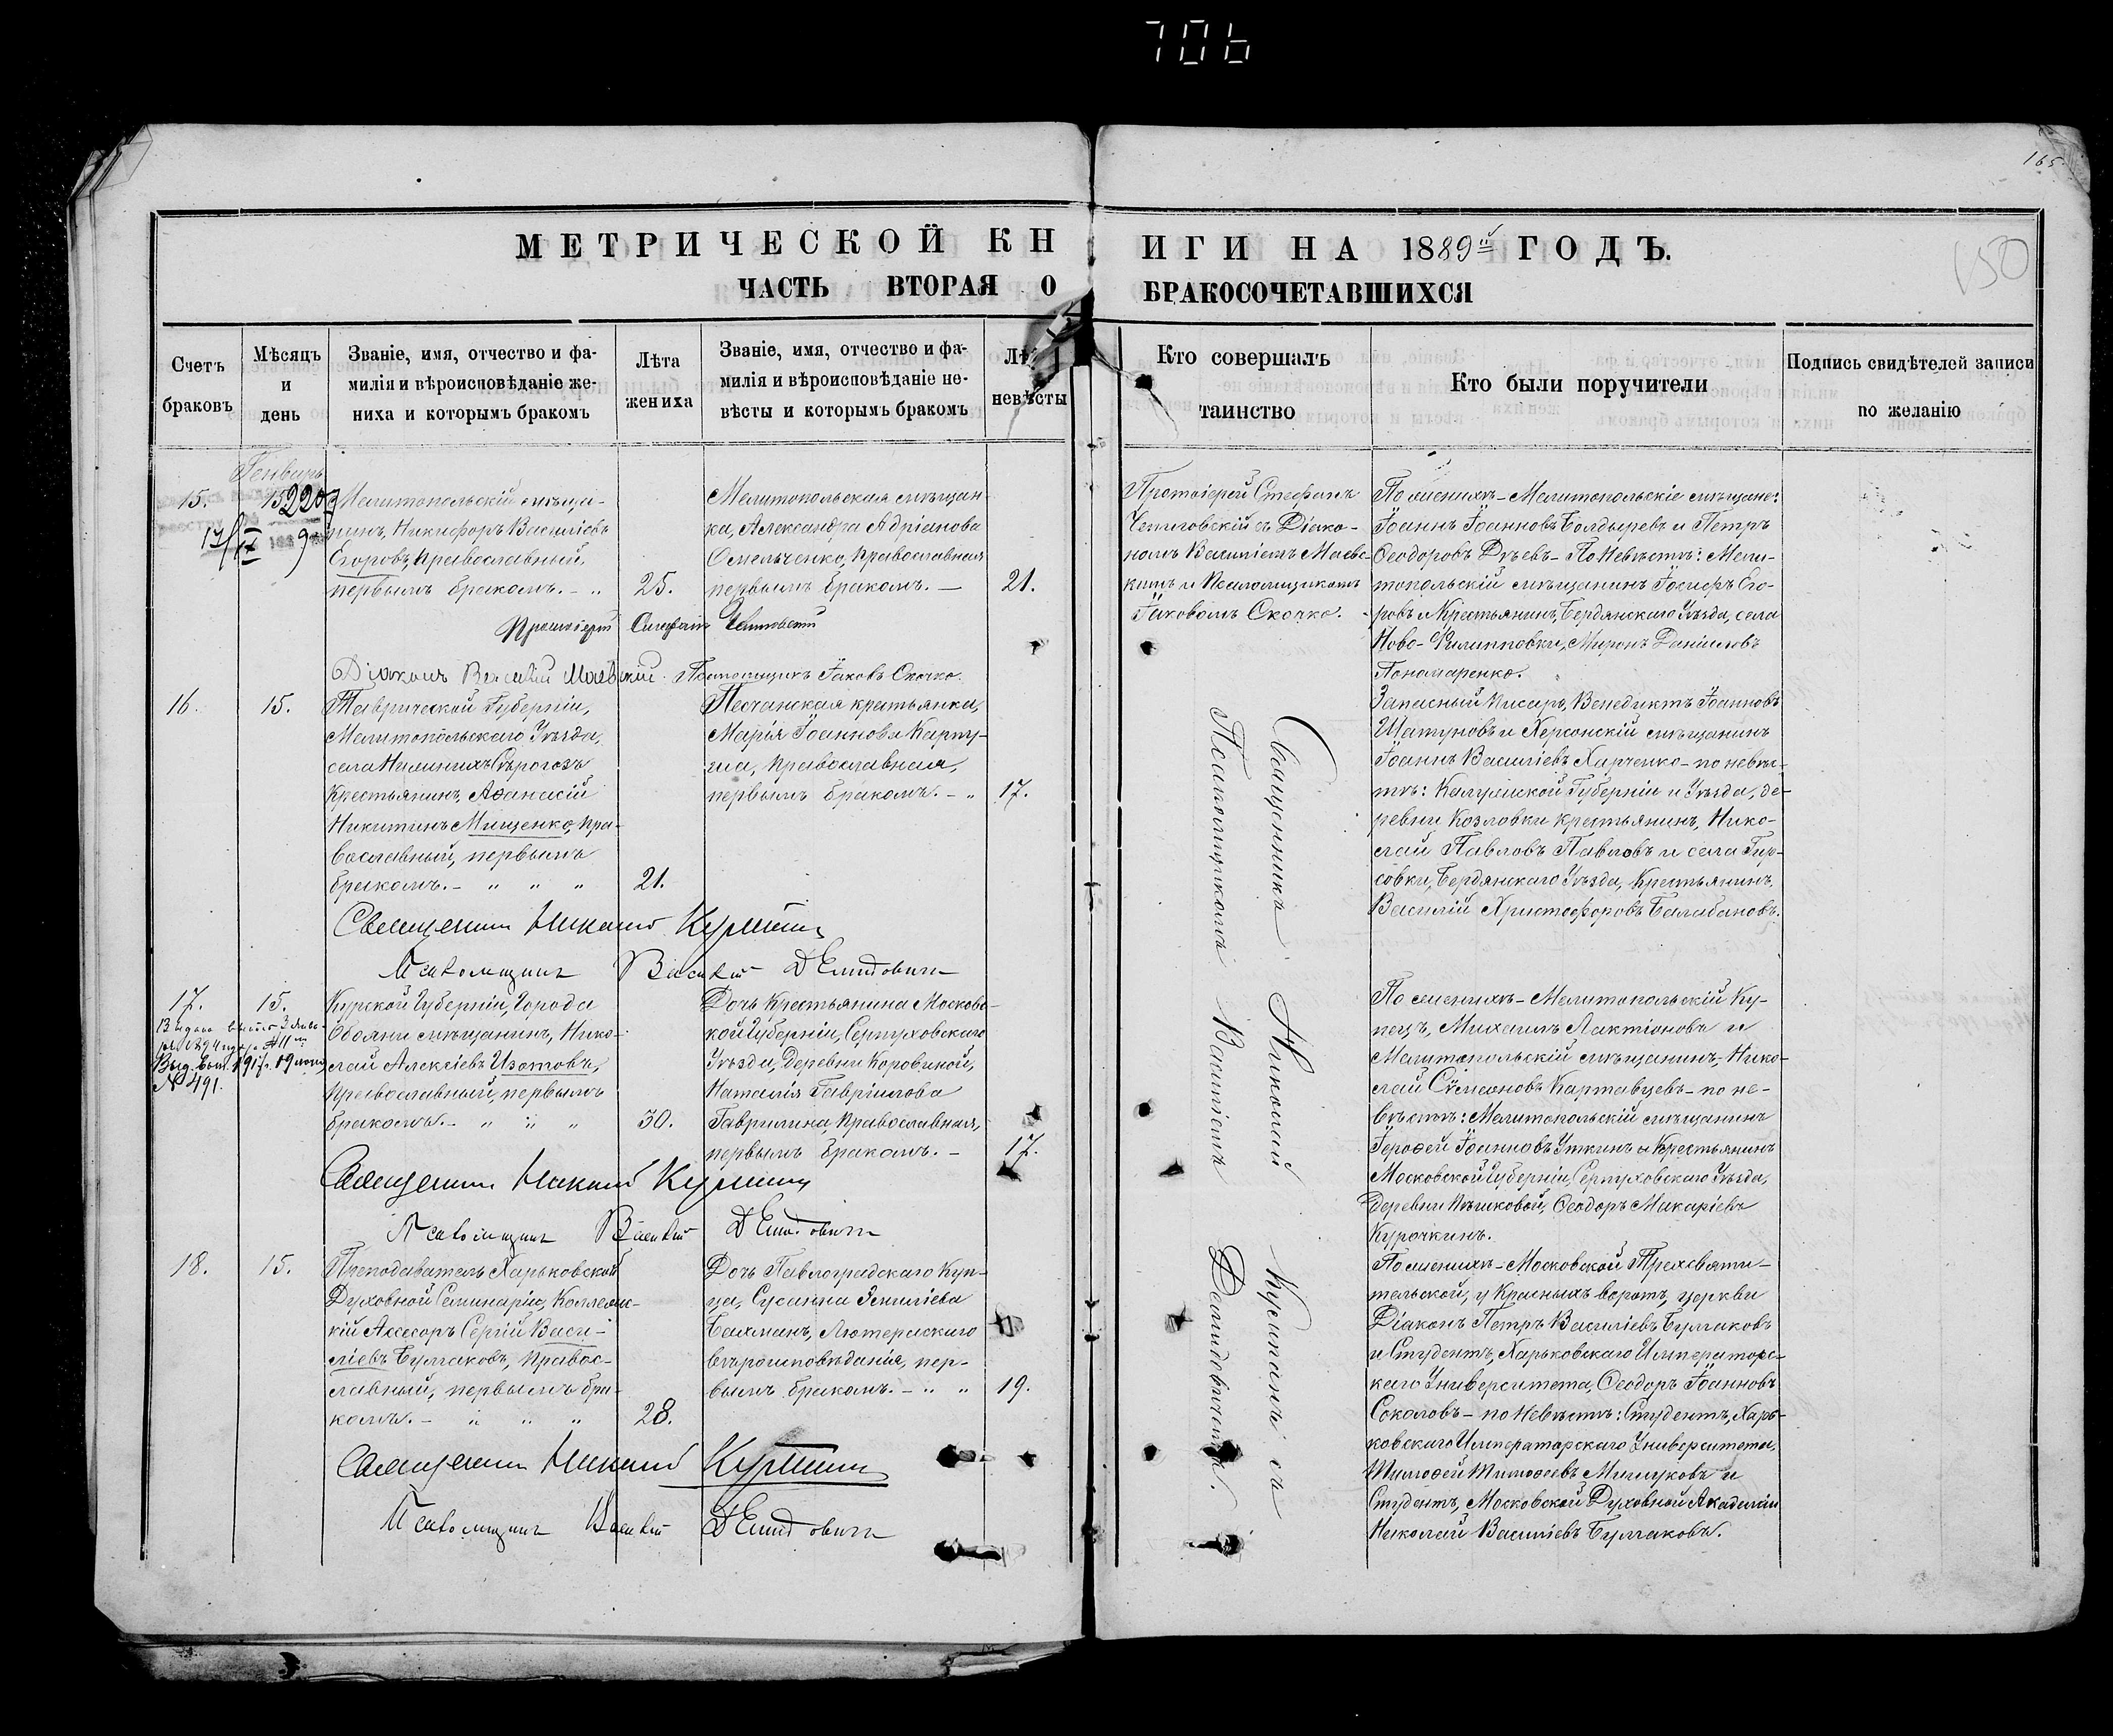 706
165.
150
МЕТРИЧЕСКОЙ КНИГИ НА 1889й ГОДЪ.
ЧАСТЬ ВТОРАЯ О БРАКОСОЧЕТАВШИХСЯ
Счетъ
браковъ
Мѣсяцъ
и
день
Званіе, имя, отчество и фа-
милія и вѣроисповѣданіе же-
ниха и которымъ бракомъ
Лѣта
жениха
Званіе, имя, отчество и фа-
милія и вѣроисповѣданіе не-
вѣсты и которымъ бракомъ
невѣсты
Кто совершалъ
таинство
Кто были поручители
Подпись свидѣтелей записи
по желанію
Генварь
15.
15
Мелитопольскій мѣща-
нинъ, Никифоръ Василіевъ
Егоровъ, Православный,
первымъ бракомъ. - "
25.
Мелитопольская мѣщан-
ка, Александра Адріанова
Омельченко, Православная
первымъ бракомъ. —
21.
Протоіерей Стефанъ
съ Діако-
номъ Василіемъ Маевс-
кимъ и Псаломщикомъ
Іаковомъ Скочко.
По женихѣ - Мелитопольскіе мѣщане:
Іоаннъ Іоанновъ Болдыревъ и Петръ
Ѳеодоровъ - По Невѣстѣ: Мели-
топольскій мѣщанинъ Іосифъ Его-
ровъ и Крестьянинъ, Бердянскаго Уѣзда, села
Ново-Филипповки, Миронъ Даніиловъ
Пономаренко.
Протоіерей Стефанъ
Діаконъ Василій Маевскій. Псаломщикъ Іаковъ Скочко.
16.
15.
Таврической Губерніи,
Мелитопольскаго Уѣзда,
села Нижнихъ Сѣрогозъ
Крестьянинъ, Аѳанасій
Никитинъ Мищенко, Пра-
вославный, первымъ
бракомъ. - " " "
21.
Песчанская крестьянка,
Марія Іоаннова
Православная,
первымъ бракомъ. - "
17.
Запасный Писарь, Венедиктъ Іоанновъ
Шатуновъ и Херсонскій мѣщанинъ
Іоаннъ Василіевъ Харченко - по невѣс-
тѣ: Калужской Губерніи и Уѣзда, де-
ревни Козловки крестьянинъ, Нико-
лай Павловъ Павловъ и села Гир-
совки, Бердянскаго Уѣзда, Крестьянинъ,
Василій Христофоровъ Балабановъ.
Священникъ Николай
Псаломщикъ Василій Демидовичъ
17.
15.
Выд. вып. 1917 г. 19
№ 491.
Курской Губерніи, Города
Обояни мѣщанинъ, Нико-
лай Алексіевъ Изотовъ,
Православный, первымъ
бракомъ. - " " "
30.
Дочь Крестьянина Московс-
кой Губерніи, Серпуховскаго
Уѣзда, Деревни Коровиной,
Наталія Гавріилова
Гаврилина, Православная,
первымъ бракомъ. -
17.
По женихѣ - Мелитопольскій Ку-
пецъ, Михаилъ Лактіоновъ и
Мелитопольскій мѣщанинъ, Нико-
лай Сѵмеоновъ Картавцевъ - по не-
вѣстѣ: Мелитопольскій мѣщанинъ
Іероѳей Іоанновъ Уткинъ и Крестьянинъ
Московской Губерніи, Серпуховскаго Уѣзда,
Деревни Ѳеодоръ Макаріевъ
Курочкинъ.
Священникъ Николай
Псаломщикъ Василій Демидовичъ
18.
15.
Преподаватель Харьковской
Духовной Семинаріи, Коллежс-
кій Ассесоръ Сергій Васи-
ліевъ Булгаковъ, Правос-
лавный, первымъ бра-
комъ. - " " "
28.
Дочь Павлоградскаго Куп-
ца, Сусанна
Бахманъ, Лютеранскаго
вѣроисповѣданія, пер-
вымъ бракомъ. - " "
19.
По женихѣ - Московской Трехсвяти-
тельской, у Красныхъ воротъ, церкви
Діаконъ Петръ Василіевъ Булгаковъ
и Студентъ, Харьковскаго Императорс-
каго Университета, Ѳеодоръ Іоанновъ
Соколовъ - по Невѣстѣ: Студентъ, Харь-
ковскаго Императорскаго Университета,
Тимоѳей Тимоѳеевъ и
Студентъ, Московской Духовной Академіи
Николай Василіевъ Булгаковъ.
Священникъ Николай
Псаломщикъ Василій Демидовичъ
Священникъ Николай съ
Псаломщикомъ Василіемъ Демидовичемъ.